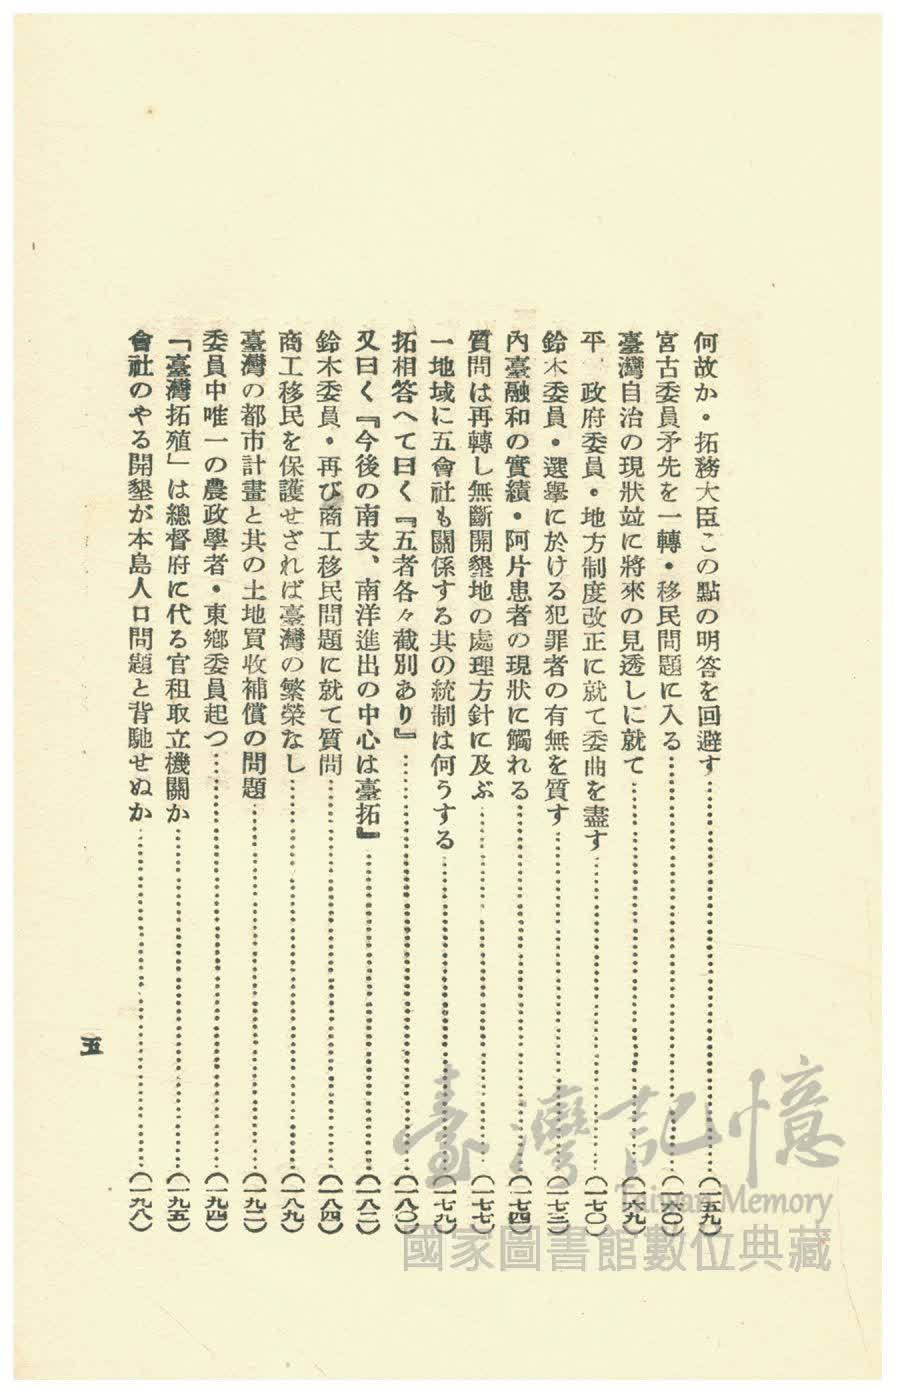 何故か・拓務大臣この點の明答を回避す……(一五九)
宮古委員矛先を一轉・移民問題に入る……(一六〇)
臺灣自治の現狀竝に將來の見透しに就て……(一六九)
平 政府委員・地方制度改正に就て委曲を盡す……(一七〇)
鈴木委員・選擧に於ける犯罪者の有無を質す……(一七三)
內臺融和の實績・阿片患者の現狀に觸れる……(一七四)
質問は再轉し無斷開墾地の處理方針に及ぶ……(一七七)
一地域に五會社も關係する其の統制は何うする……(一七九)
拓相答へて曰く『五者各々截別あり』……(一八〇)
又曰く『今後の南支、南洋進出の中心は臺拓』……(一八二)
鈴木委員・再び商工移民問題に就て質問……(一八四)
商工移民を保護せざれば臺灣の繁榮なし……(一八九)
臺灣の都市計畫と其の土地買收補償の問題……(一九二)
委員中唯一の農政學者・東鄕委員起つ……(一九四)
「臺灣拓殖」は總督府に代る官租取立機關か……(一九五)
會社のやる開墾が本島人口問題と背馳せぬか……(一九八)
五
臺灣記憶
Taiwan Memory
國家圖書館數位典藏